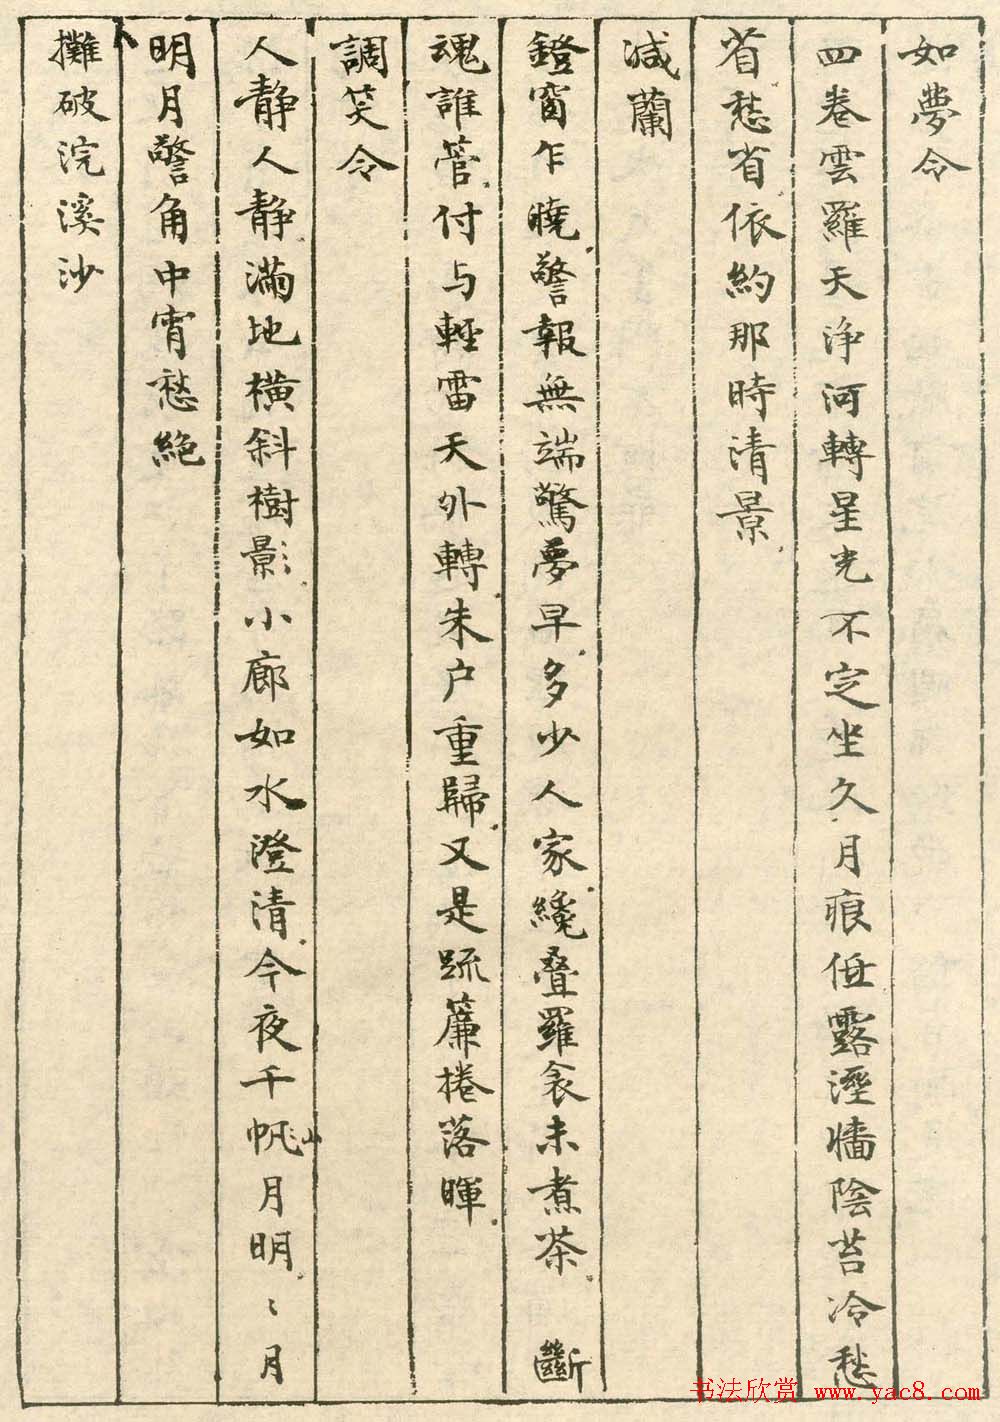 如夢令
四卷雲羅天淨河轉星光不定坐久月痕低露溼牆陰苔冷愁
省愁省依約那時清景
減蘭
鐙窗乍曉警報無端驚夢早多少人家纔疊羅衾未煮茶 斷
魂誰管付与輕雷天外轉朱户重歸又是疏簾捲落暉
調笑令
人靜人靜滿地橫斜樹影小廊如水澄清今夜千帆山月明〻月
明月警角中宵愁絕
攤破浣溪沙
书法欣赏 www.yac8.com